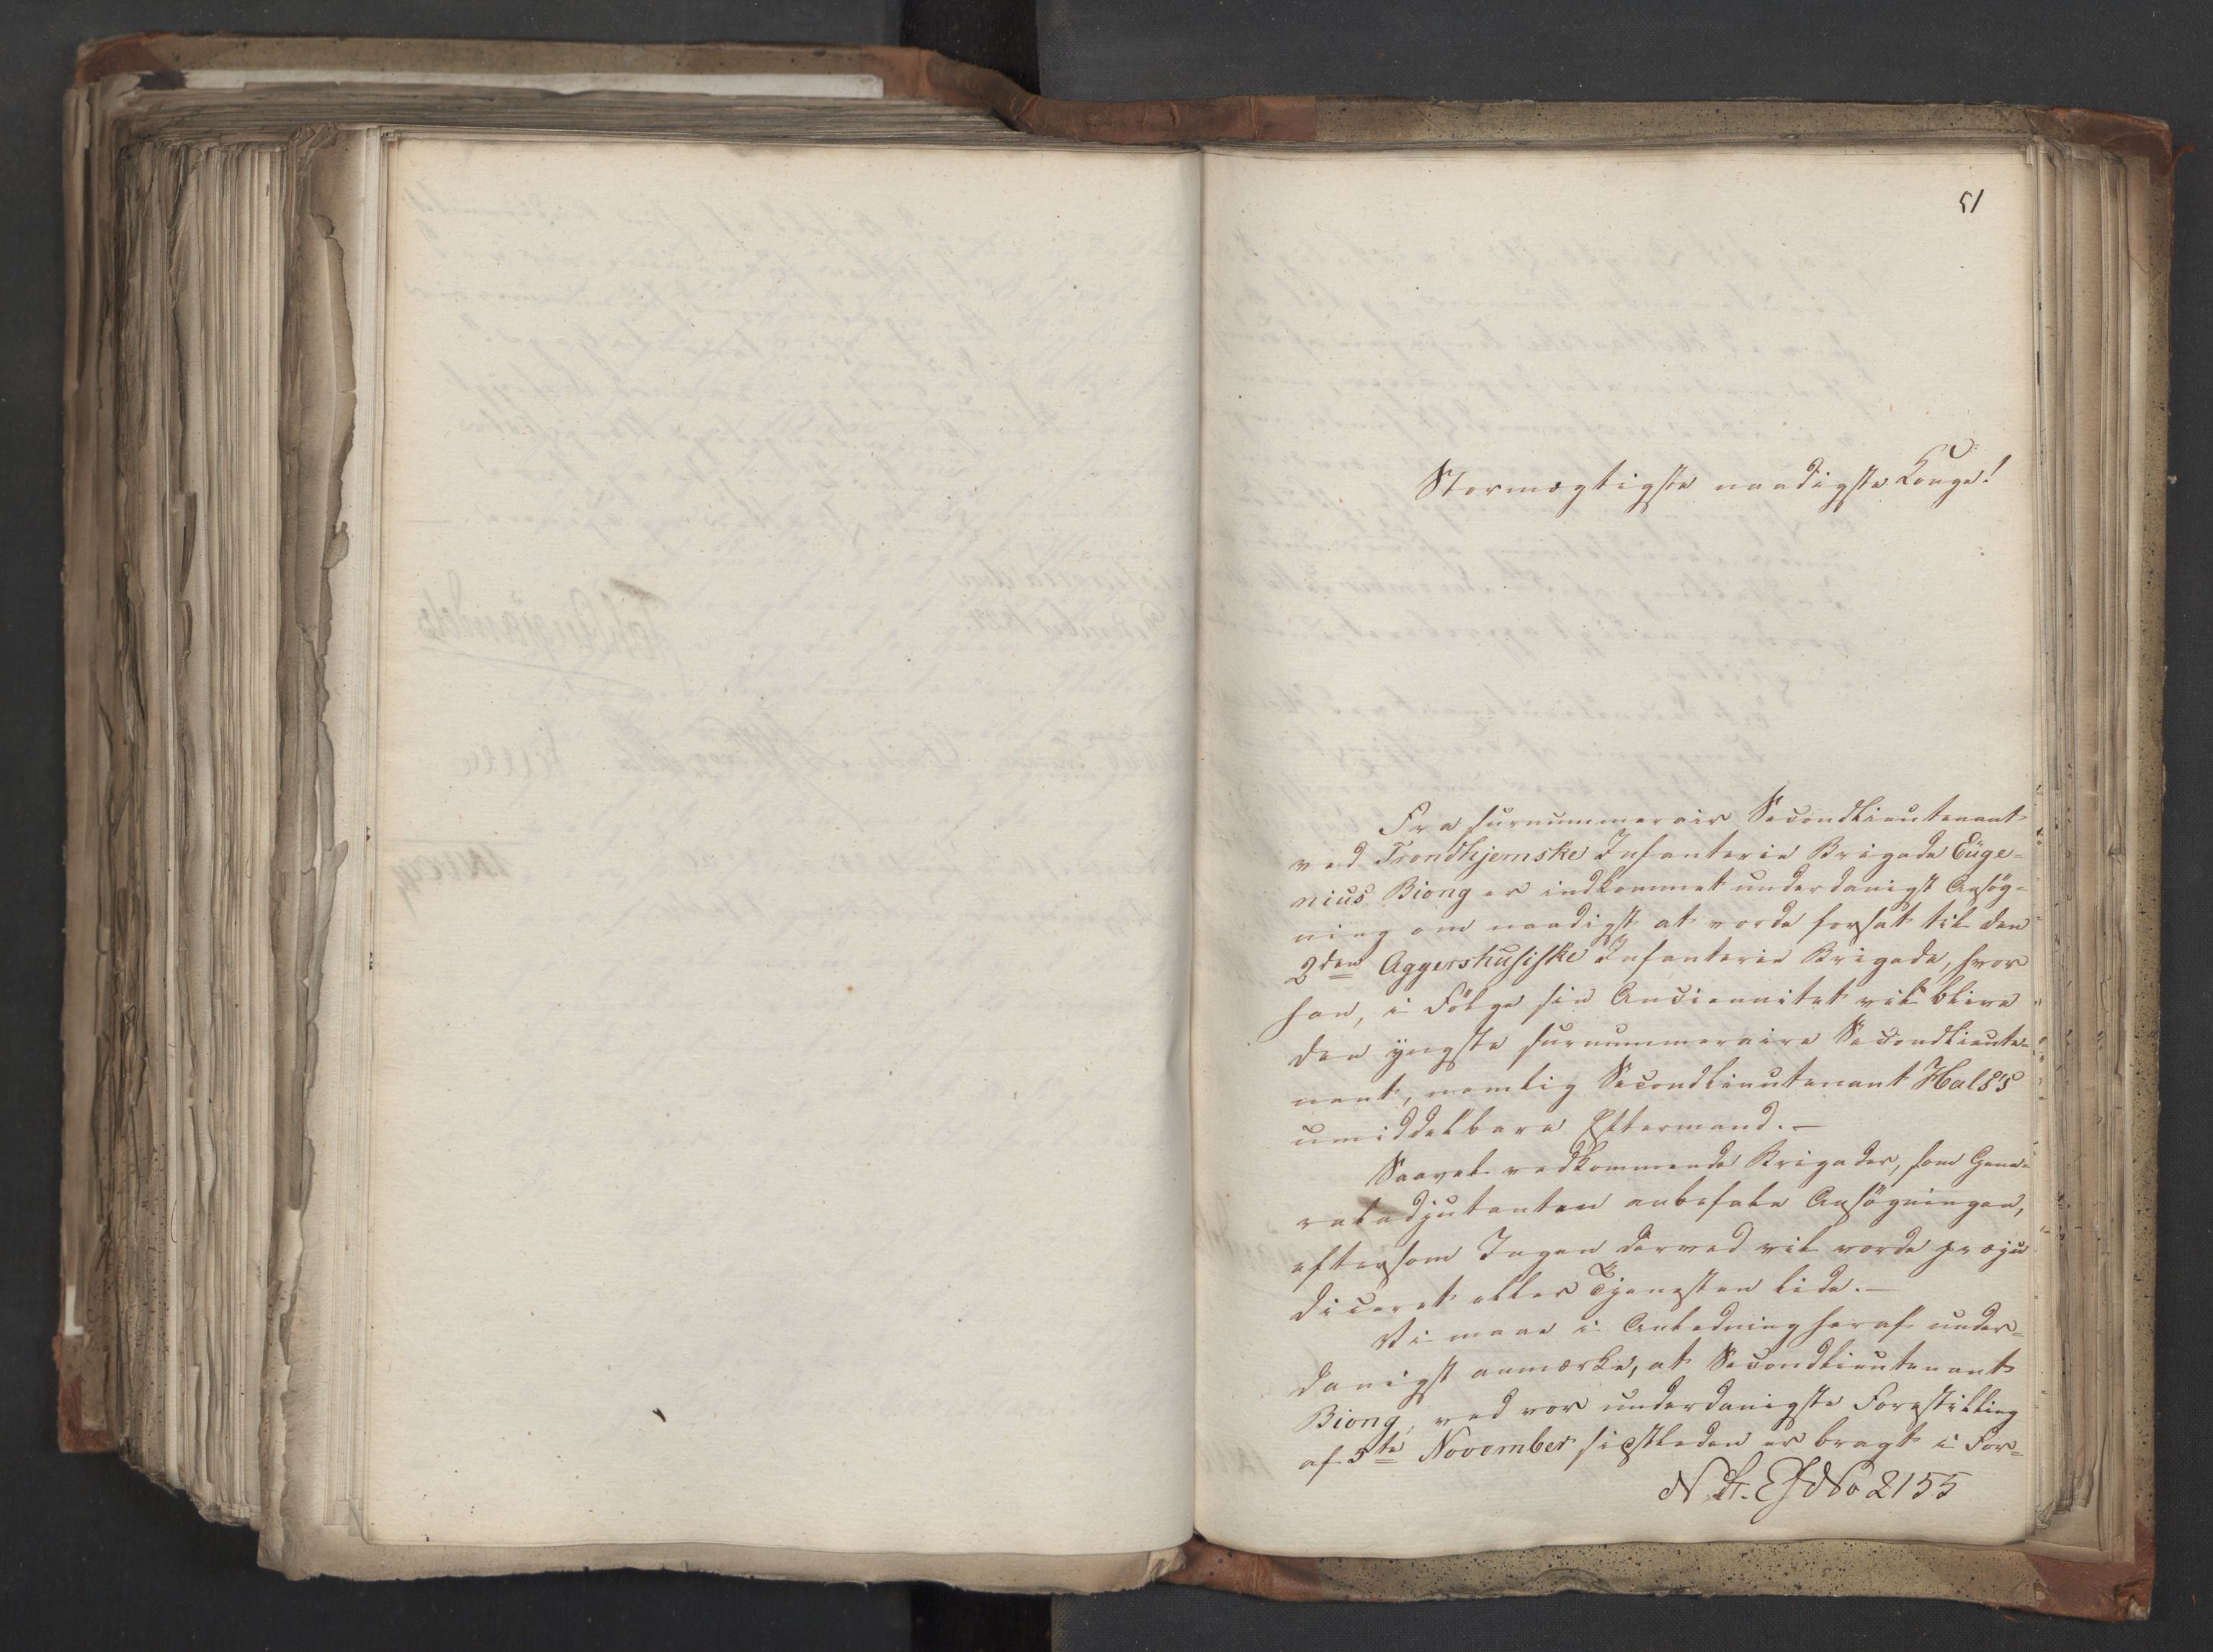 51
Stormægtigste naadigste Konge!
Fra surnummerair Secondlieutenant
ved Trondhjemske Infanterie Brigade Euge=
nius Biong er indkommet underdanigst Ansøg=
ning om naadigst at vorde forsat til den
2den Aggershusiske Infanterie Brigade, hvor
han, i Følge sin Anciennitet vil blive
den yngste surnummeraire Secondlieute=
nant, nemlig Secondlieutenant Hals's
umiddelbare Eftermand.—
Saavel vedkommende Brigader, som Gene=
raladjutanten anbefale Ansøgningen,
eftersom Ingen derved vil vorde præju
diceret eller Tjenesten lide.—
Vi maae i Anledning heraf under=
danigst anmærke, at Secondlieutenant
Biong, ved vor underdanigste Forestilling
af 5te November sidstleden er bragt i For=
No 2155